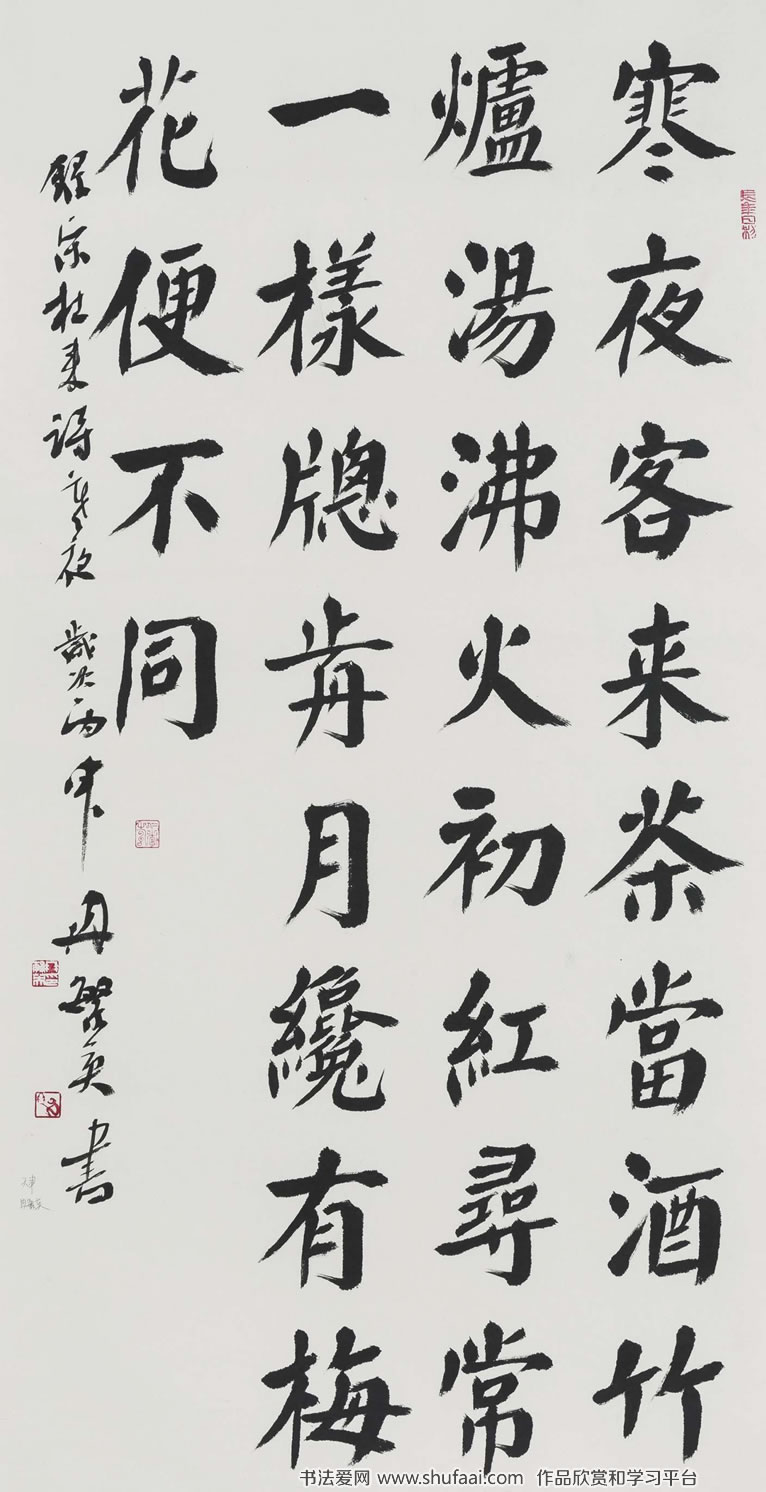 寒夜客来茶當酒竹
爐湯沸火初紅尋常
一樣牕歬月纔有梅
花便不同
錄宋杜耒詩寒夜 歲次丙申 丹 英書
书法爱网 www.shufaai.com 作品欣赏和学习平台